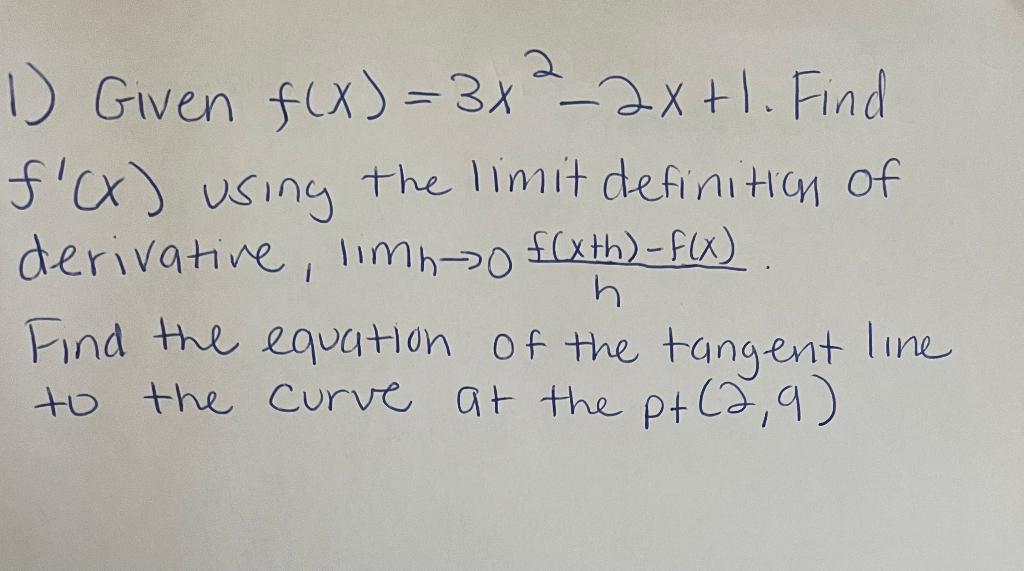 1) Given f(x) = 3x² - 2x + 1. Find
f'(x) using the limit definition of
derivative, lim h→0 f(x+h)-f(x) / h .
Find the equation of the tangent line
to the curve at the pt (2,9)